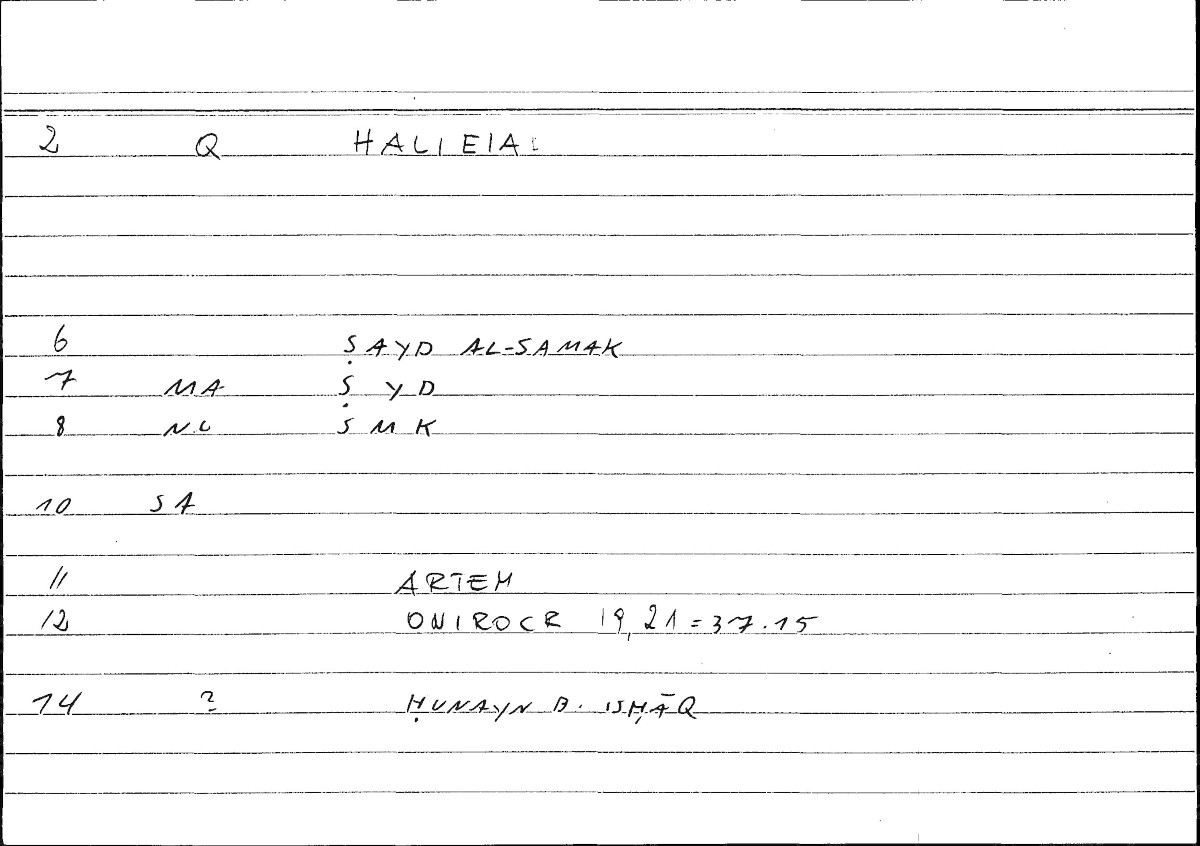 2 Q HALIEIA:
6 ṢAYD AL-SAMAK
7 MA Ṣ YD
8 NL S M K
10 SA
11 ARTEM
12 ONIROCR 19,21=37.15
14 ? ḤUNAYN B. ISḤĀQ